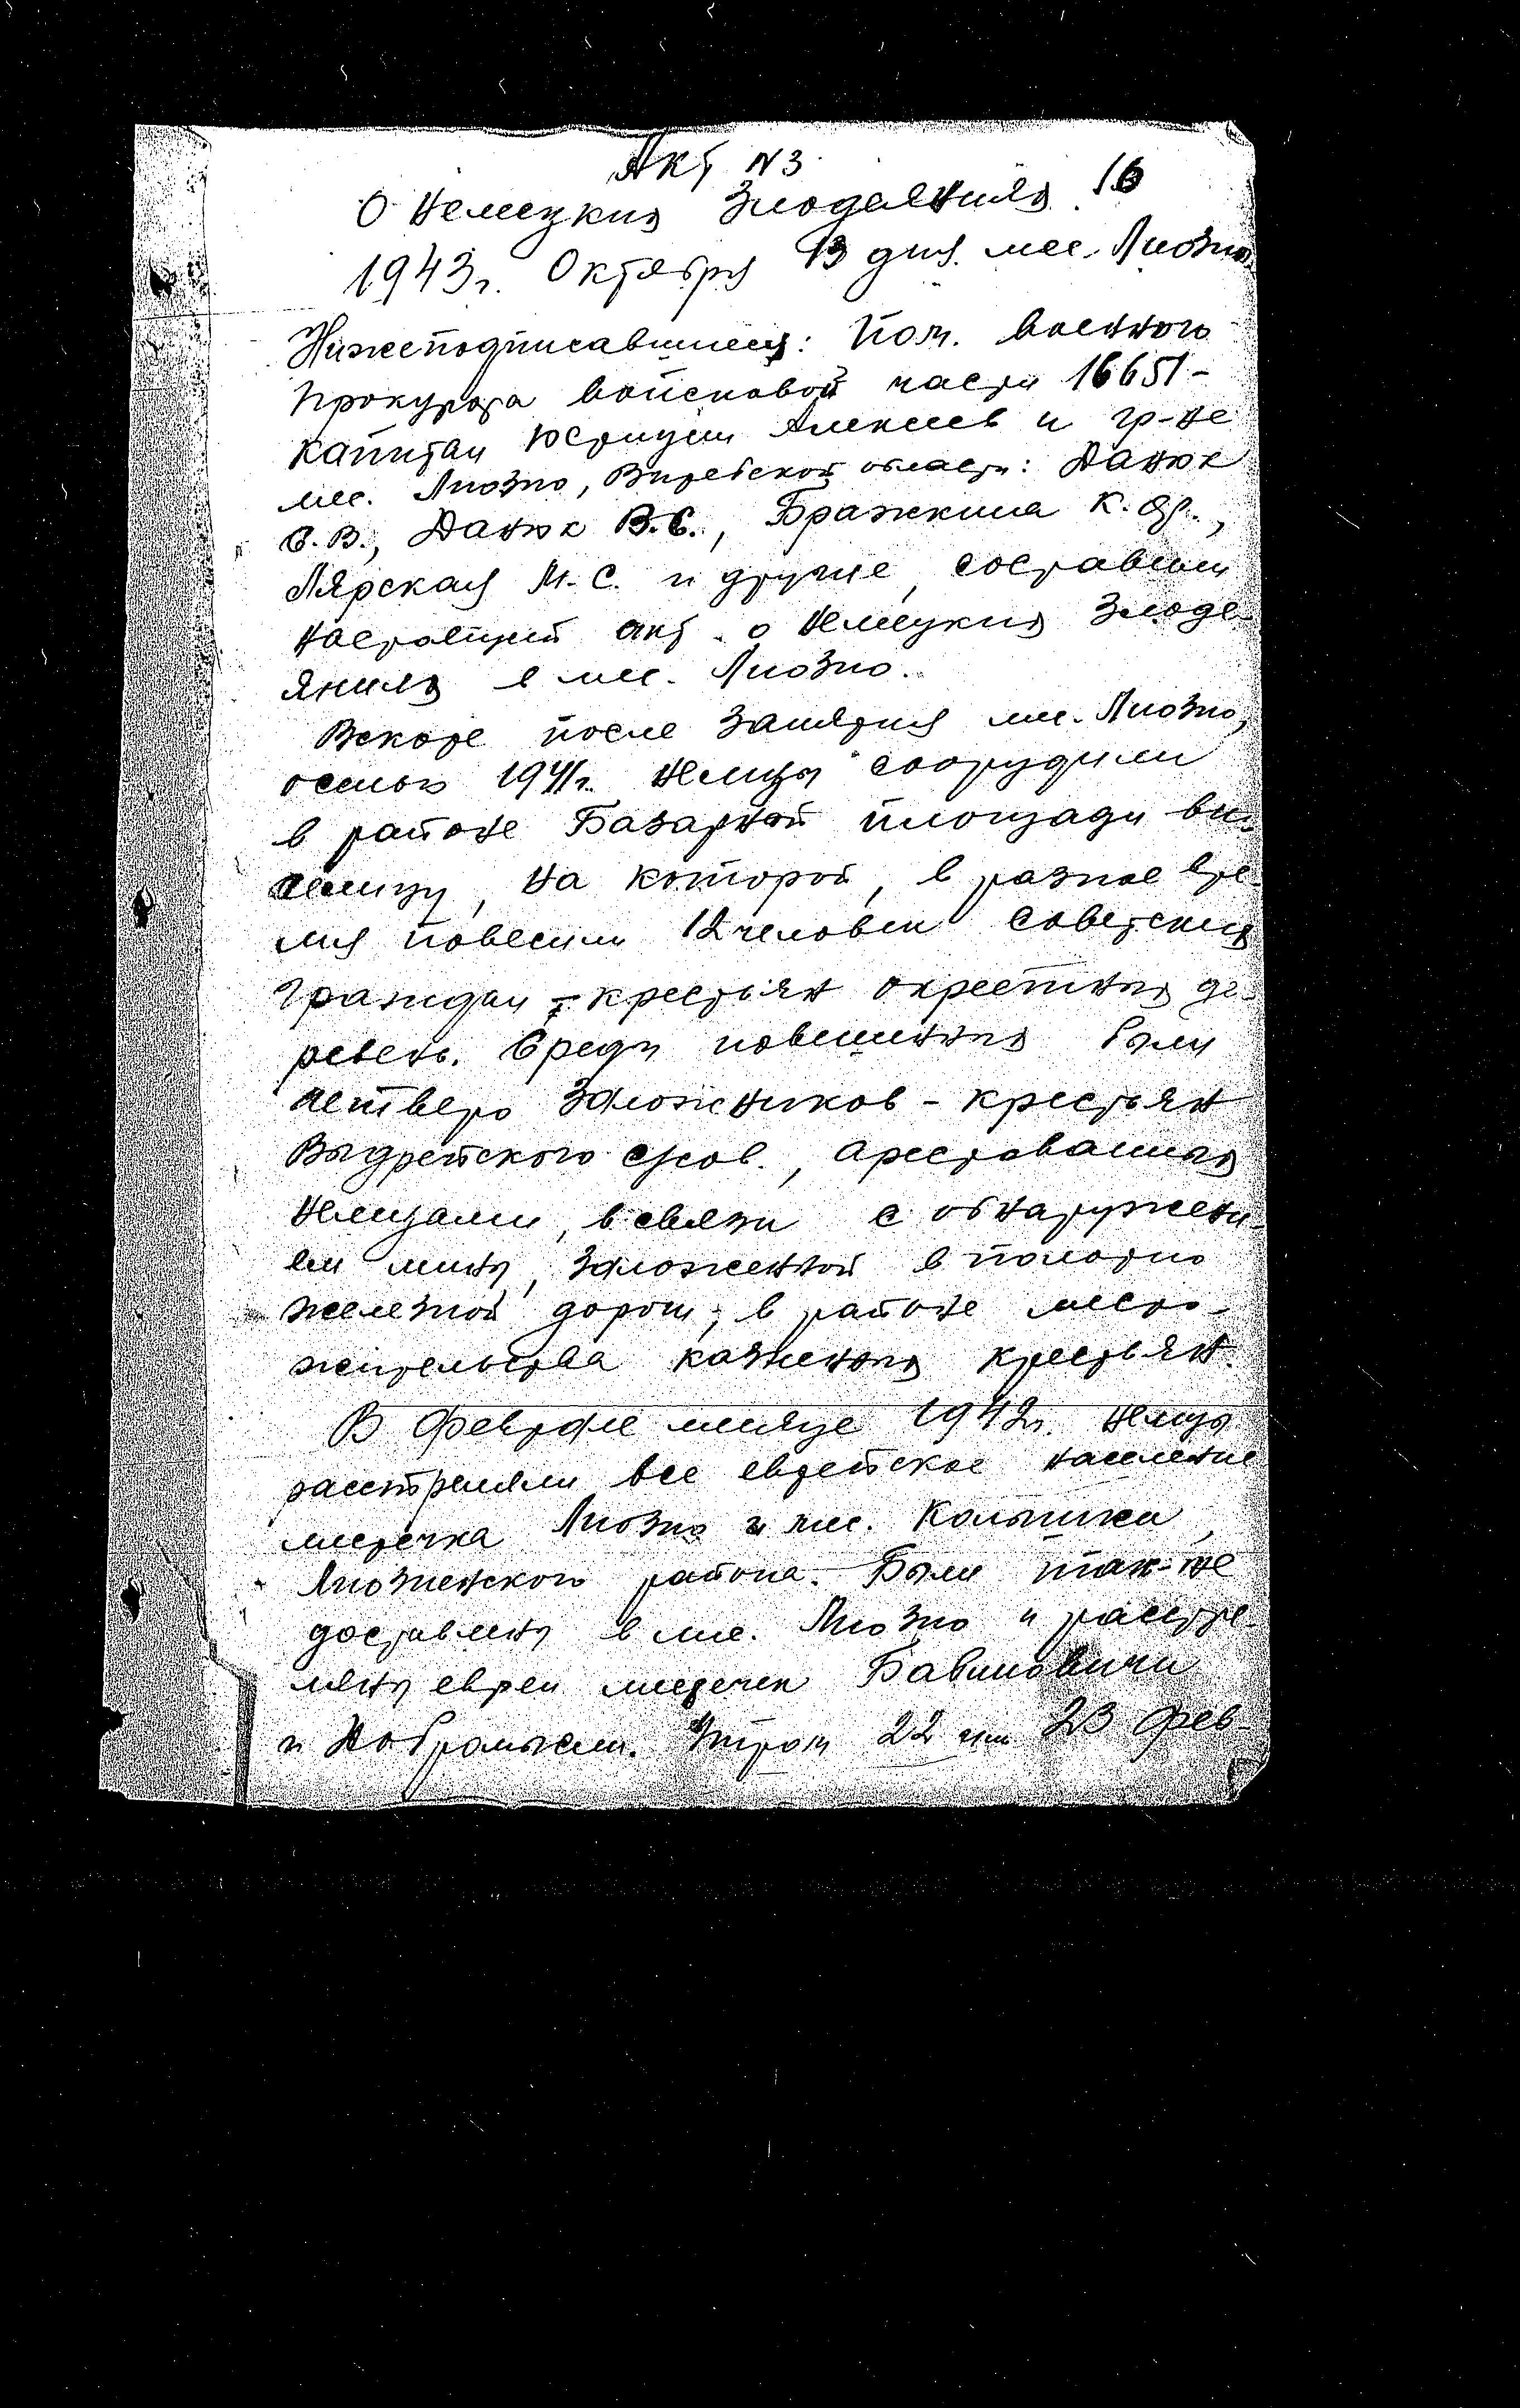 Акт N3
16
О немецких злодеяниях
1943г. Октября 13 дня. мес. Лиозно.
Нижеподписавшиеся: Пом. военного
прокурора войсковой части 16651-
капитан юстиции Алексеев и гр-не
мес. Лиозно, Витебской области: Данюк
С.В., Данюк В.С., Бражкина К.Ф.,
Лярская М.С. и другие, составили
настоящий акт о немецких злоде-
яниях в мес. Лиозно.
Вскоре после занятия мес. Лиозно,
осенью 1941г. немцы соорудили
в районе Базарной площади ви-
селицу, на которой, в разное вре-
мя повесили 12 человек советских
граждан - крестьян окрестных де-
ревень. Среди повешенных были
четверо заложников - крестьян
Выдрейского с/сов., арестованных
немцами, в связи с обнаружени-
ем мины, заложенной в полотно
железной дороги, в районе место-
жительства казненных крестьян.
В феврале месяце 1942г. немцы
расстреляли все еврейское население
местечка Лиозно и мес. Колышки,
Лиозненского района. Были так-же
доставлены в мес. Лиозно и расстре-
ляны евреи местечек Бабиновичи
и Добромысли. Утром 22 или 23 фев-